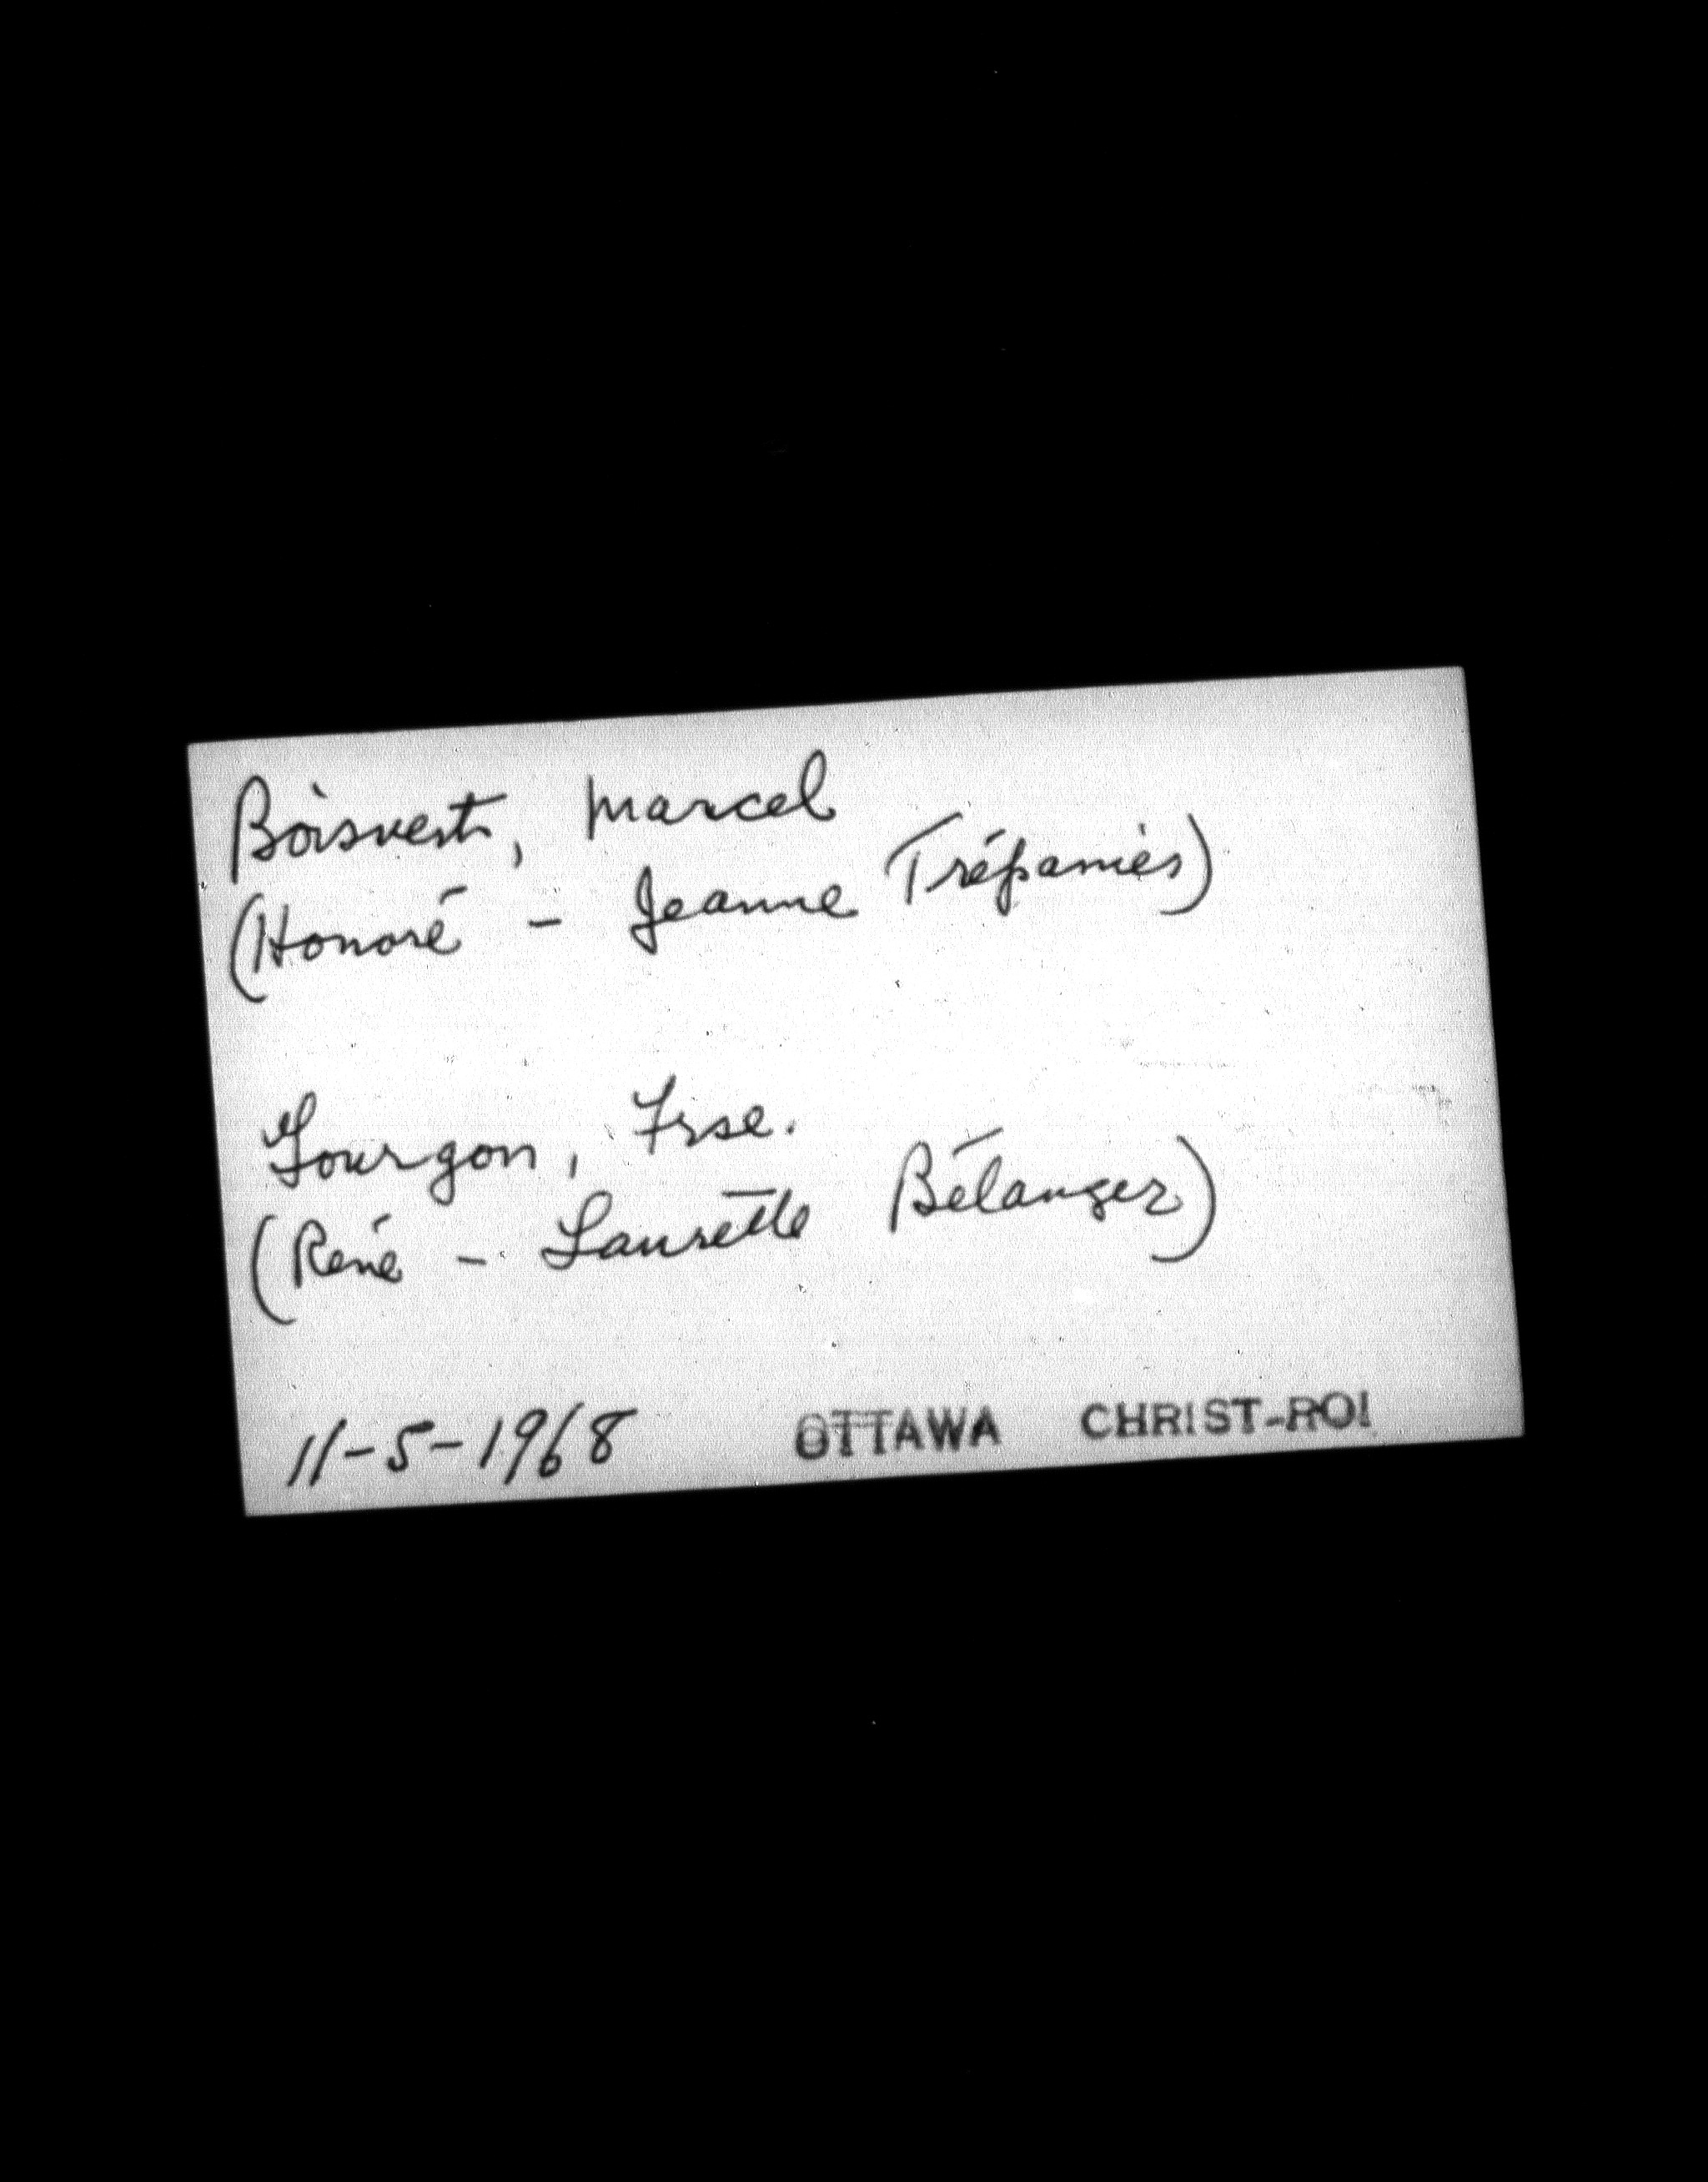 Boisvert, Marcel
(Honoré - Jeanne Trépanier)
Gourgon, Frse.
(René - Laurette Bélanger)
11-5-1968 OTTAWA CHRIST-ROI